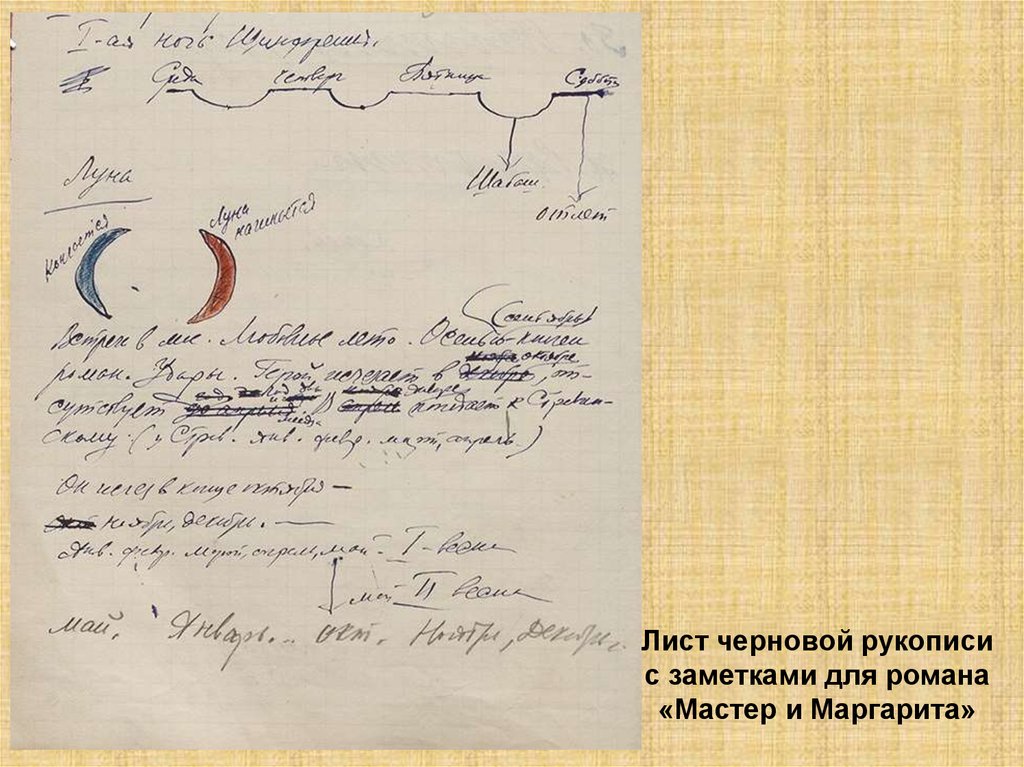 I-ая ночь
Среда четверг Пятница Суббота
Луна
Шабаш.
отлет
Кончается
Луна начинается
(сентябрь)
Встреч в мае. Любовное лето. Осенью кончен
октябре
роман. Удары. Герой исчезает в
сутствует попадает к Страви-
нскому. (у Стр. янв. февр. март, апрель.)
Он исчез в конце октября —
ноябрь, декабрь. —
Янв. февр. март, апрель, май - I-весна
май II весна
май. Январь... окт. Ноябрь, Декабрь.
Лист черновой рукописи
с заметками для романа
«Мастер и Маргарита»